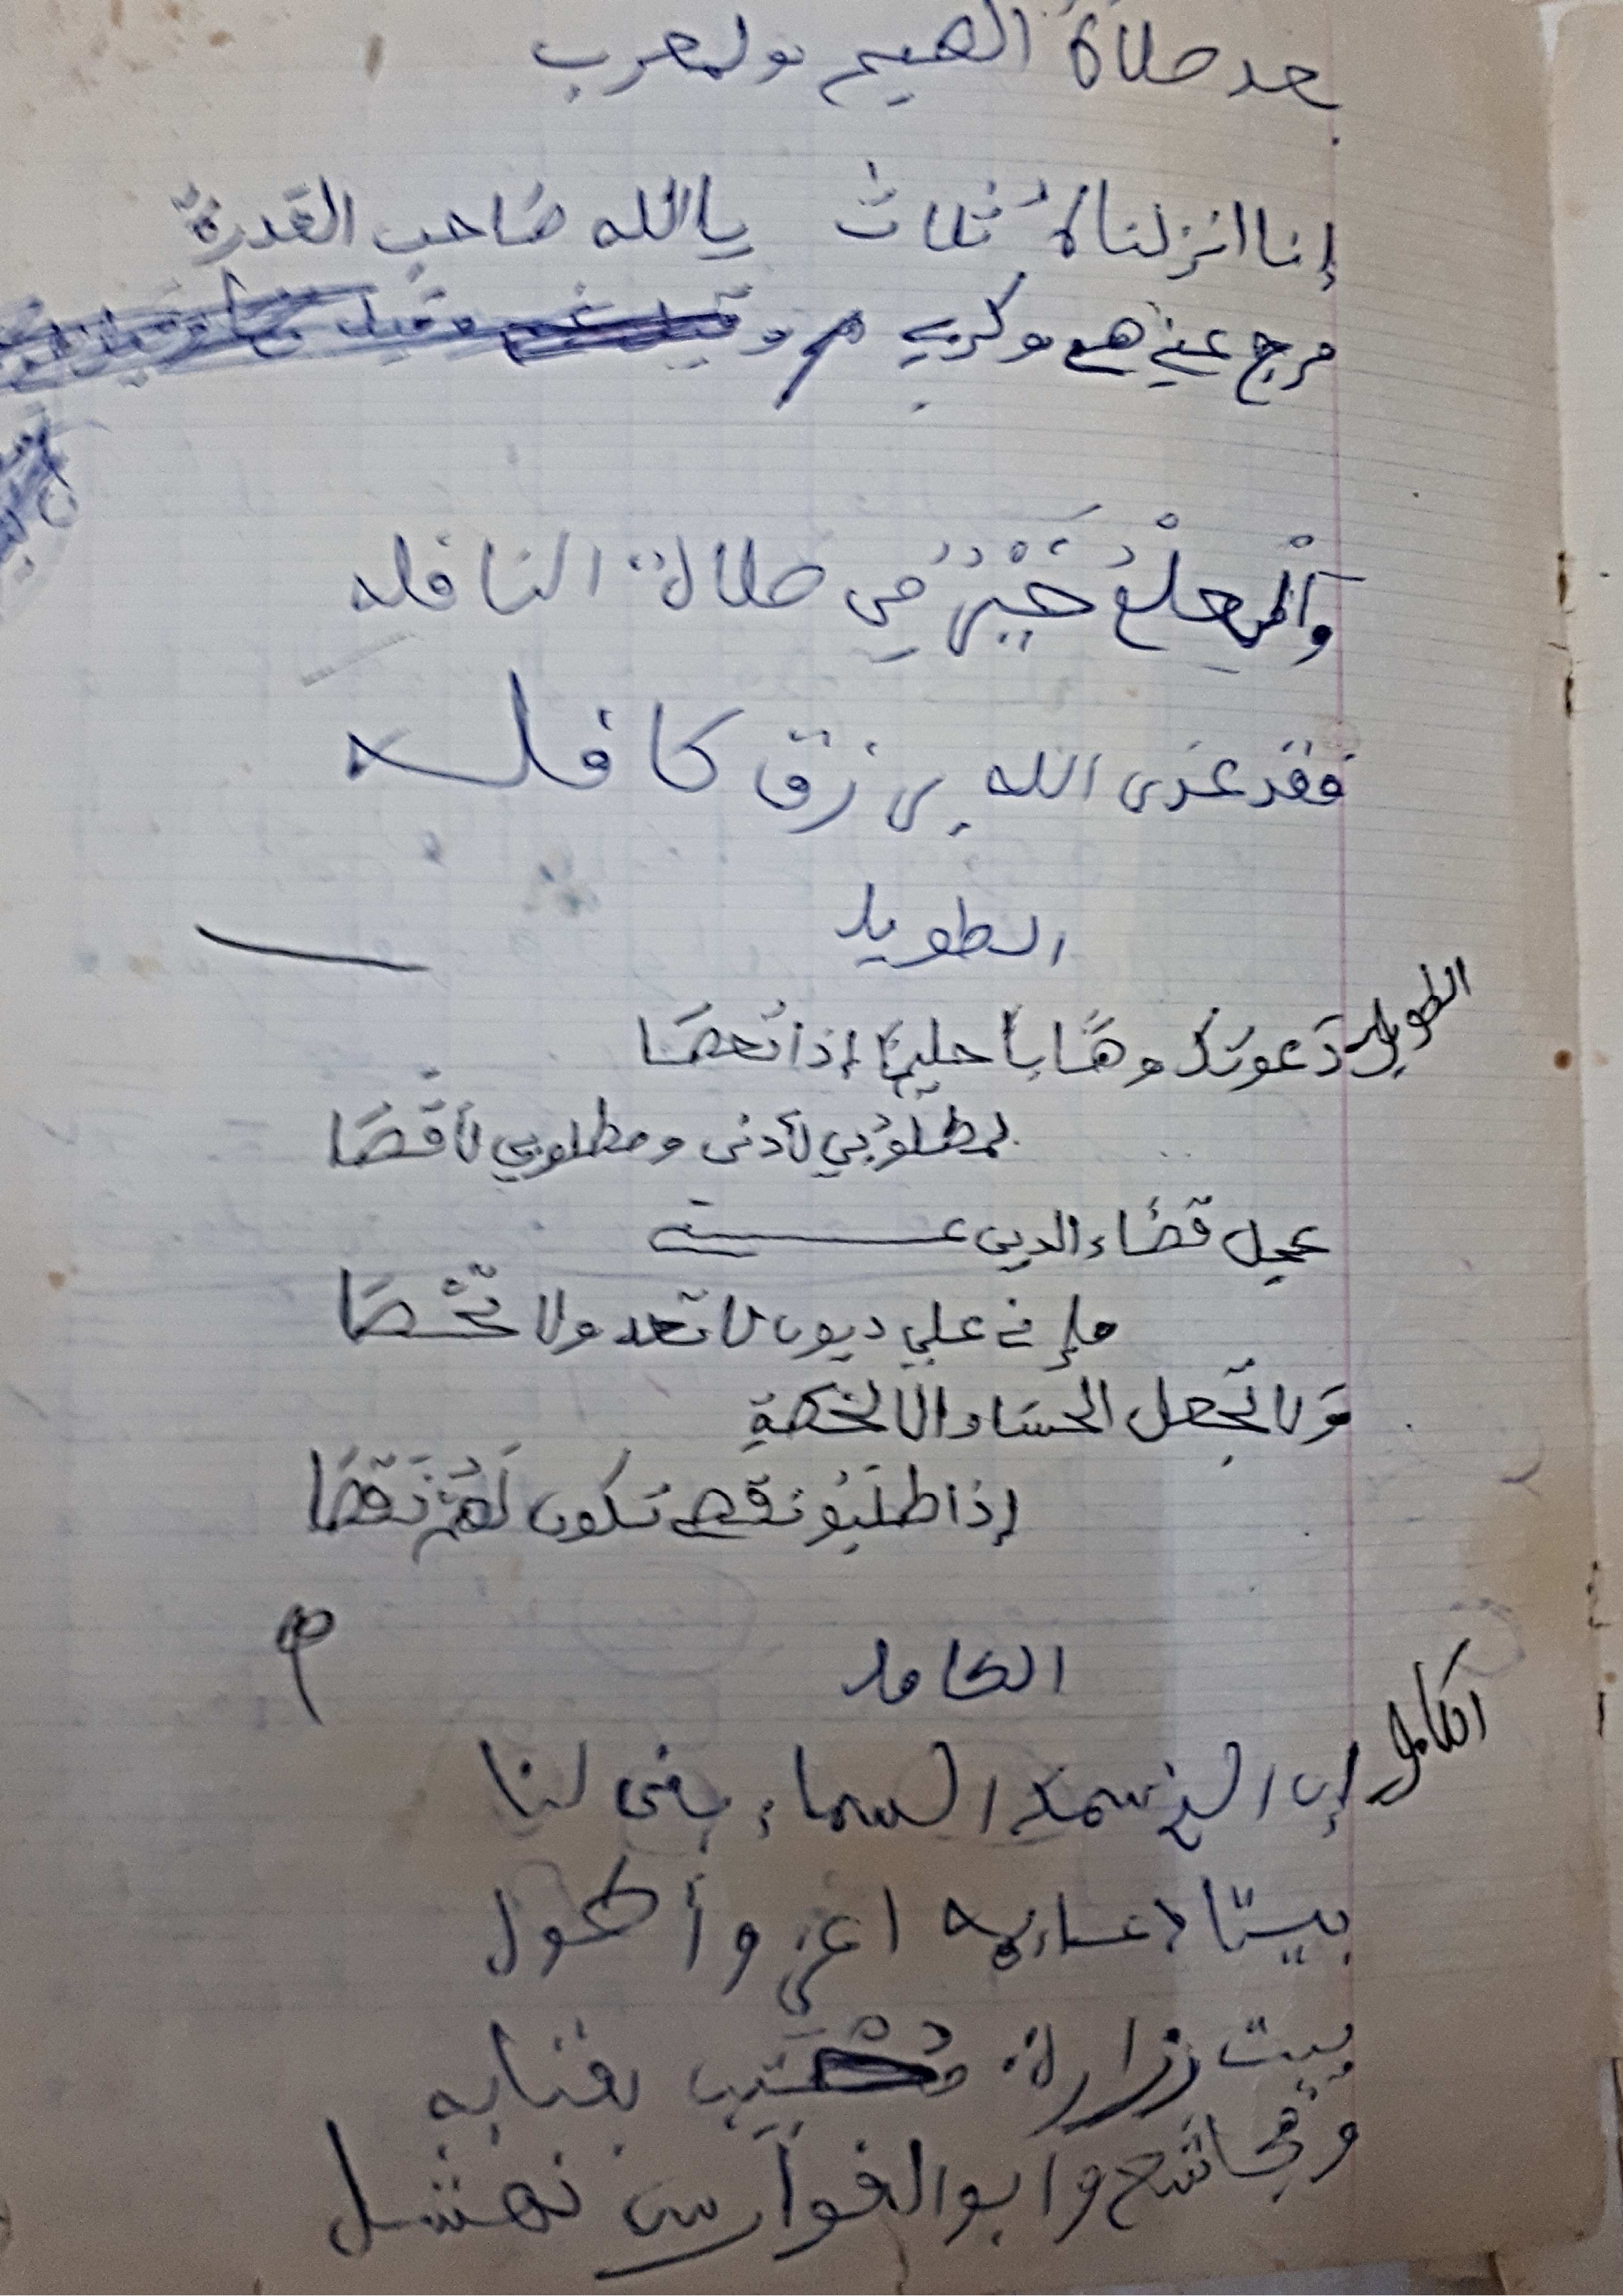 بعد صلاة الصبح ولمغرب
إنا انزلناه ثلاث يالله صاحب القدرة
فرج عني هم وكربي
والعلم خير من صلاة النافله
فقد غدى الله برزق كافله
الطويل
الطويل دعوتك وهابا حليما إذا تعصا
لمطلوبي لأدنى ومطلوبي لأقصا
عجل قضاء الدين عني
فإني علي ديون لا تعد ولا تحصا
ولا تجعل الحساد إلا لخصمة
إذا طلبو نقصي تكون لهم نقصا
م
الكامل
الكامل إن الذي سمك السماء بنى لنا
بيتا دعائمه اعز وأطول
بيت زرارة محتب بفنايه
ومجاشع وأبو الفوارس نهشل